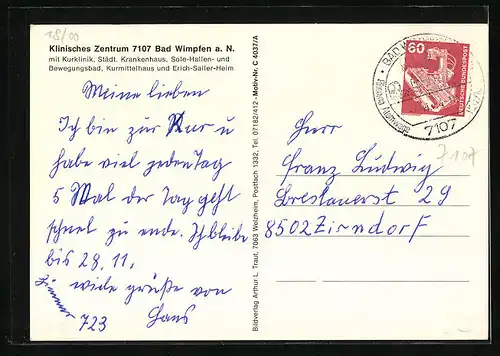 18/00
Klinisches Zentrum 7107 Bad Wimpfen a. N.
mit Kurklinik, Städt. Krankenhaus, Sole-Hallen- und
Bewegungsbad, Kurmittelhaus und Erich-Sailer-Heim
Meine lieben
Ich bin zur Kur u
habe viel jeden Tag
5 Mal der Tag geht
schnel zu ende. Ich bleibe
bis 28.11.
viele grüße von
Zimmer
723 Hans
Bildverlag Arthur L. Traut, 7063 Welzheim, Postfach 1332, Tel. 07182/412 - Motiv-Nr. C 4037/A
BAD
60
DEUTSCHE BUNDESPOST
7107
7107
Herr
Franz Ludwig
Breslauerst 29
8502 Zirndorf